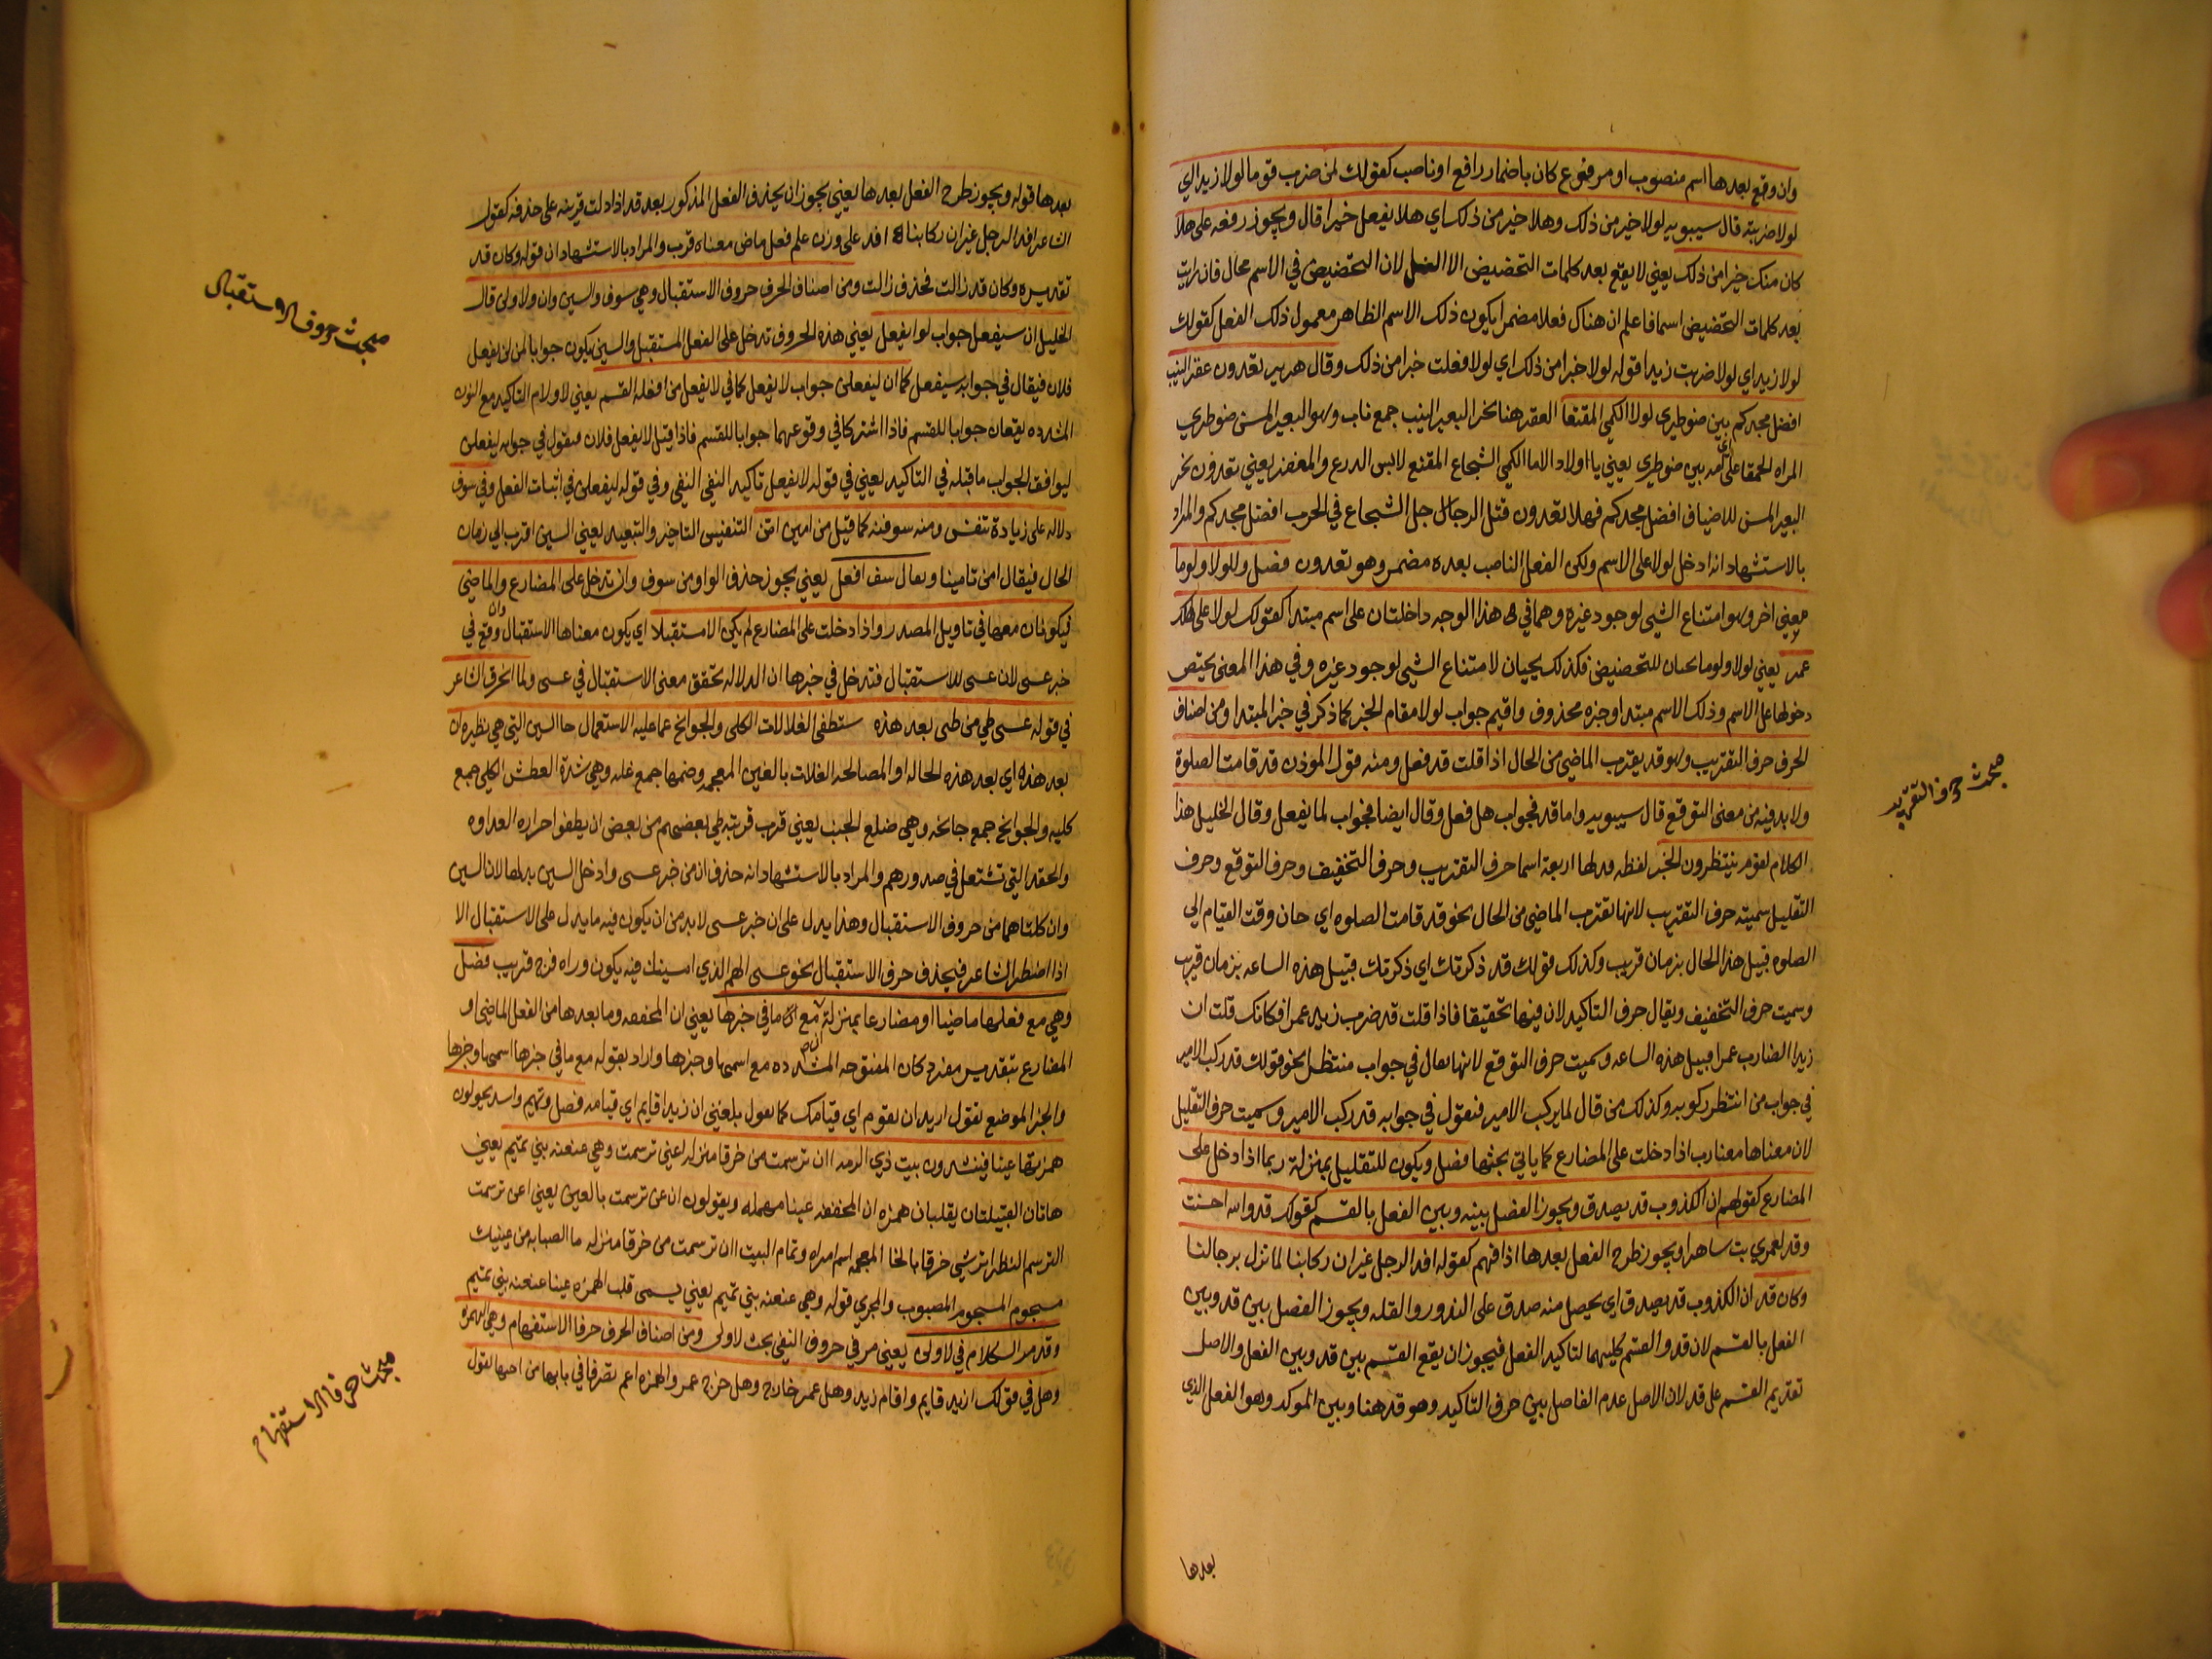 وان وقع بعدها اسم منصوب او مرفوع كان باضمار رافع او ناصب كقولك لمن ضرب قوما لولا زيدا اي
لولا ضربته قال سيبويه لولا خير من ذلك وهلا خير من ذلك اي هلا يفعل خيرا قال ويجوز رفعه على هلا
كان منك خير من ذلك يعني لا يقع بعد كلمات التحضيض الا الفعل لان التحضيض في الاسم محال فان رايت
بعد كلمات التحضيض اسما فاعلم ان هناك فعلا مضمرا يكون ذلك الاسم الظاهر معمول ذلك الفعل كقولك
لولا زيدا اي لولا ضربت زيدا قوله لولا خيرا من ذلك اي لولا فعلت خيرا من ذلك وقال جرير تعدون عقر النيب
افضل مجدكم بني ضوطرى لولا الكمي المقنعا العقر هنا نحر البعير النيب جمع ناب وهو البعير المسن ضوطرى
المراه الحمقا على امه بني ضوطرى يعني يا اولاد الاما الكمي الشجاع المقنع لابس الدرع والمغفر يعني تعدون نحر
البعير المسن للاضياف افضل مجدكم فهلا تعدون قتل الرجال الرجل الشجاع في الحرب افضل مجدكم والمراد
بالاستشهاد انه ادخل لولا على الاسم ولكن الفعل الناصب بعده مضمر وهو تعدون فصل وللولا ولوما
معنى اخر وهو امتناع الشي لوجود غيره وهما في هذا الوجه داخلتان على اسم مبتدا كقولك لولا علي لهلك
عمر يعني لولا ولوما للتحضيض فكذلك يجيان لامتناع الشي لوجود غيره وفي هذا المعنى يختص
دخولها على الاسم وذلك الاسم مبتدا وخبره محذوف واقيم جواب لولا مقام الخبر كما ذكر في خبر المبتدا ومن اصناف
الحرف حرف التقريب وهو قد يقرب الماضي من الحال اذا قلت قد فعل ومنه قول الموذن قد قامت الصلوة
ولا بد فيه من معنى التوقع قال سيبويه واما قد فجواب هل فعل وقال ايضا فجواب لما يفعل وقال الخليل هذا
الكلام لقوم ينتظرون الخبر لفظه قد لها اربعة اسما حرف التقريب وحرف التحقيق وحرف التوقع وحرف
التقليل سميته حرف التقريب لانها تقرب الماضي من الحال نحو قد قامت الصلوه اي حان وقت القيام الي
الصلوه قبيل هذا الحال بزمان قريب وكذلك قولك قد ذكرتك اي ذكرتك قبيل هذه الساعه بزمان قريب
وسميت حرف التحقيق ويقال حرف التاكيد لان فيها تحقيقا فاذا قلت قد ضرب زيد عمرا فكانك قلت ان
زيدا الضارب عمرا قبيل هذه الساعه وسميت حرف التوقع لانها تقال في جواب منتظر نحو قولك قد ركب الامير
في جواب من انتظر ركوبه وكذلك من قال لما يركب الامير فتقول في جوابه قد ركب الامير وسميت حرف التقليل
لان معناها معنا رب اذا دخلت على المضارع كما ياتي بحثها فصل ويكون للتقليل بمنزلة ربما اذا دخل على
المضارع كقولهم ان الكذوب قد يصدق ويجوز الفصل بينه وبين الفعل بالقسم كقولك قد والله احسنت
وقد لعمري بت ساهرا ويجوز طرح الفعل بعدها اذا فهم كقوله افد الرجل غير ان ركابنا لما تزل برحالنا
وكان قد ان الكذوب قد يصدق اي يحصل منه صدق على الندور والقله ويجوز الفصل بين قد وبين
الفعل بالقسم لان قد والقسم كليهما لتاكيد الفعل فيجوز ان يقع القسم بين قد وبين الفعل والاصل
تقديم القسم على قد لان الاصل عدم الفاصل بين حرف التاكيد وهو قد هنا وبين الموكد وهو الفعل الذي
بعدها
مبحث حرف التقريب
بعدها قوله ويجوز طرح الفعل بعدها يعني يجوز ان يحذف الفعل المذكور بعد قد اذا دلت قرينه على حذفه كقول
الشاعر افد الرجل غير ان ركابنا افد على وزن علم فعل ماض معناه قرب والمراد بالاستشهاد ان قوله وكان قد
تقديره وكان قد زالت فحذف زالت ومن اصناف الحرف حروف الاستقبال وهي سوف والسين وان ولا ولن قال
الخليل ان سيفعل جواب لن يفعل يعني هذه الحروف تدخل على الفعل المستقبل والسين يكون جوابا لمن لن يفعل
فلان فيقال في جوابه سيفعل كما ان ليفعلن جواب لا يفعل كما في لا يفعل من اقتضا القسم يعني لا ولام التاكيد مع النون
المشدده يقعان جوابا للقسم فاذا اشتركا في وقوعهما جوابا للقسم فاذا قيل لا يفعل فلان فيقول في جوابه ليفعلن
ليوافق الجواب ما قبله في التاكيد يعني في قوله لا يفعل تاكيد النفي النفي وفي قوله ليفعلن في اثبات الفعل وفي سوف
دلاله على زيادة تنفيس ومنه سوفته كما قيل من امين امن التنفيس التاخير والتبعيد يعني السين اقرب الي زمان
الحال فيقال امن تامينا ويقال سف افعل يعني يجوز حذف الواو من سوف وان تدخل على المضارع والماضي
فيكونان معها في تاويل المصدر واذا دخلت على المضارع لم يكن الا مستقبلا اي يكون معناها الاستقبال وان وقع في
خبر عسى لان عسى للاستقبال فتدخل في خبرها ان الدلاله تحقق معنى الاستقبال في عسى ولما انحرف الشاعر
في قوله عسى طي من طي بعد هذه ستطفي الغلالات الكلى والجوانح عما عليه الاستعمال جا السين التي هي نظيرة ان
بعد هذه اي بعد هذه الحاله او المصالحه الغلات بالغين المعجمه وضمها جمع غله وهي شدة العطش الكلي جمع
كليه والجوانح جمع جانحه وهي ضلع الجنب يعني قرب قربه طي بعضهم من بعض ان يطفوا حراره العداوه
والحقد التي تشتعل في صدورهم والمراد بالاستشهاد انه حذف ان من خبر عسى وادخل السين بدلها لان السين
وان كلتاهما من حروف الاستقبال وهذا يدل على ان خبر عسى لا بد من ان يكون فيه ما يدل على الاستقبال الا
اذا اضطر الشاعر فيحذف حرف الاستقبال نحو عسى الهم الذي امسيت فيه يكون وراه فرج قريب فصل
وهي مع فعلها ماضيا او مضارعا بمنزلة مع ما في خبرها يعني ان المخففه وما بعدها من الفعل الماضي او
المضارع بتقدير مفرد كان المفتوحه المشدده مع اسمها وخبرها واراد بقوله مع ما في خبرها اسمها وخبرها
والخبر الموضع تقول اريد ان تقوم اي قيامك كما تقول بلغني ان زيدا قايم اي قيامه فصل وتميم واسد يحولون
همزتها عينا فينشدون بيت ذي الرمه اان ترسمت من خرقا منزله اعني ترسمت وهي عنعنه بني تميم يعني
هاتان القبيلتان يقلبان همزه ان المخففه عينا مهمله ويقولون ان عن ترسمت بالعين يعني اعن ترسمت
الترسم النظر اثر شي خرقا بالخا المعجمه اسم امراه وتمام البيت اان ترسمت من خرقا منزله ما الصبابه من عينيك
مسجوم المسجوم المصبوب والمجري قوله وهي عنعنه بني تميم يعني يسمى قلب الهمزه عينا عنعنه بني تميم
وقد مر الكلام في لا ولن يعني مر في حروف النفي بحث لا ولن ومن اصناف الحرف حرفا الاستفهام وهي الهمزه
وهل في قولك ازيد قايم واقام زيد وهل عمرو خارج وهل خرج عمرو والهمزه اعم تصرفا في بابها من اختها تقول
مبحث حروف الاستقبال
مبحث حرفا الاستفهام